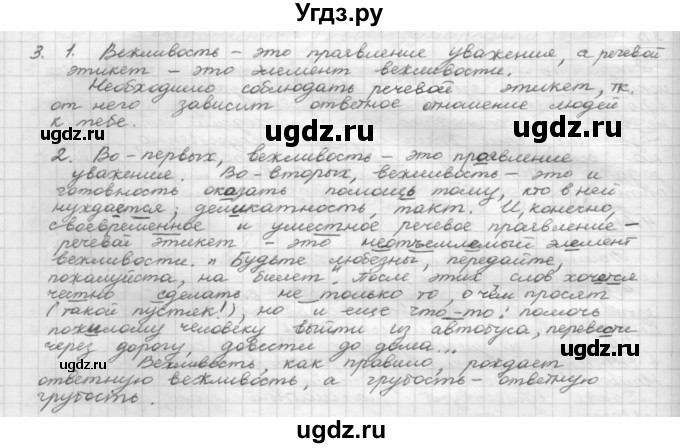 Угдз.ру
3. 1. Вежливость – это праявление уважения, а речевой
этикет – это элемент вежливости.
Необходимо соблюдать речевой этикет, т.к.
от него зависит ответное отношение людей
к тебе.
ugdz.ru ugdz.ru
2. Во-первых, вежливость – это праявление
уважения. Во-вторых, вежливость – это и
готовность оказать помощь тому, кто в ней
ugdz.ru ugdz.ru
нуждается; деликатность, такт. И, конечно,
своевременное и уместное речевое праявление –
речевой этикет – это неотъемлемый элемент
вежливости. "Будьте любезны, передайте,
ugdz.ru ugdz.ru
пожалуйста, на билет". После этих слов хочется
честно сделать не только то, о чём просят
(такой пустяк!), но и еще что-то: помочь
пожилому человеку выйти из автобуса, перевести
через дорогу, довести до дома...
ugdz.ru ugdz.ru
Вежливость, как правило, рождает
ответную вежливость, а грубость – ответную
грубость.
ugdz.ru ugdz.ru